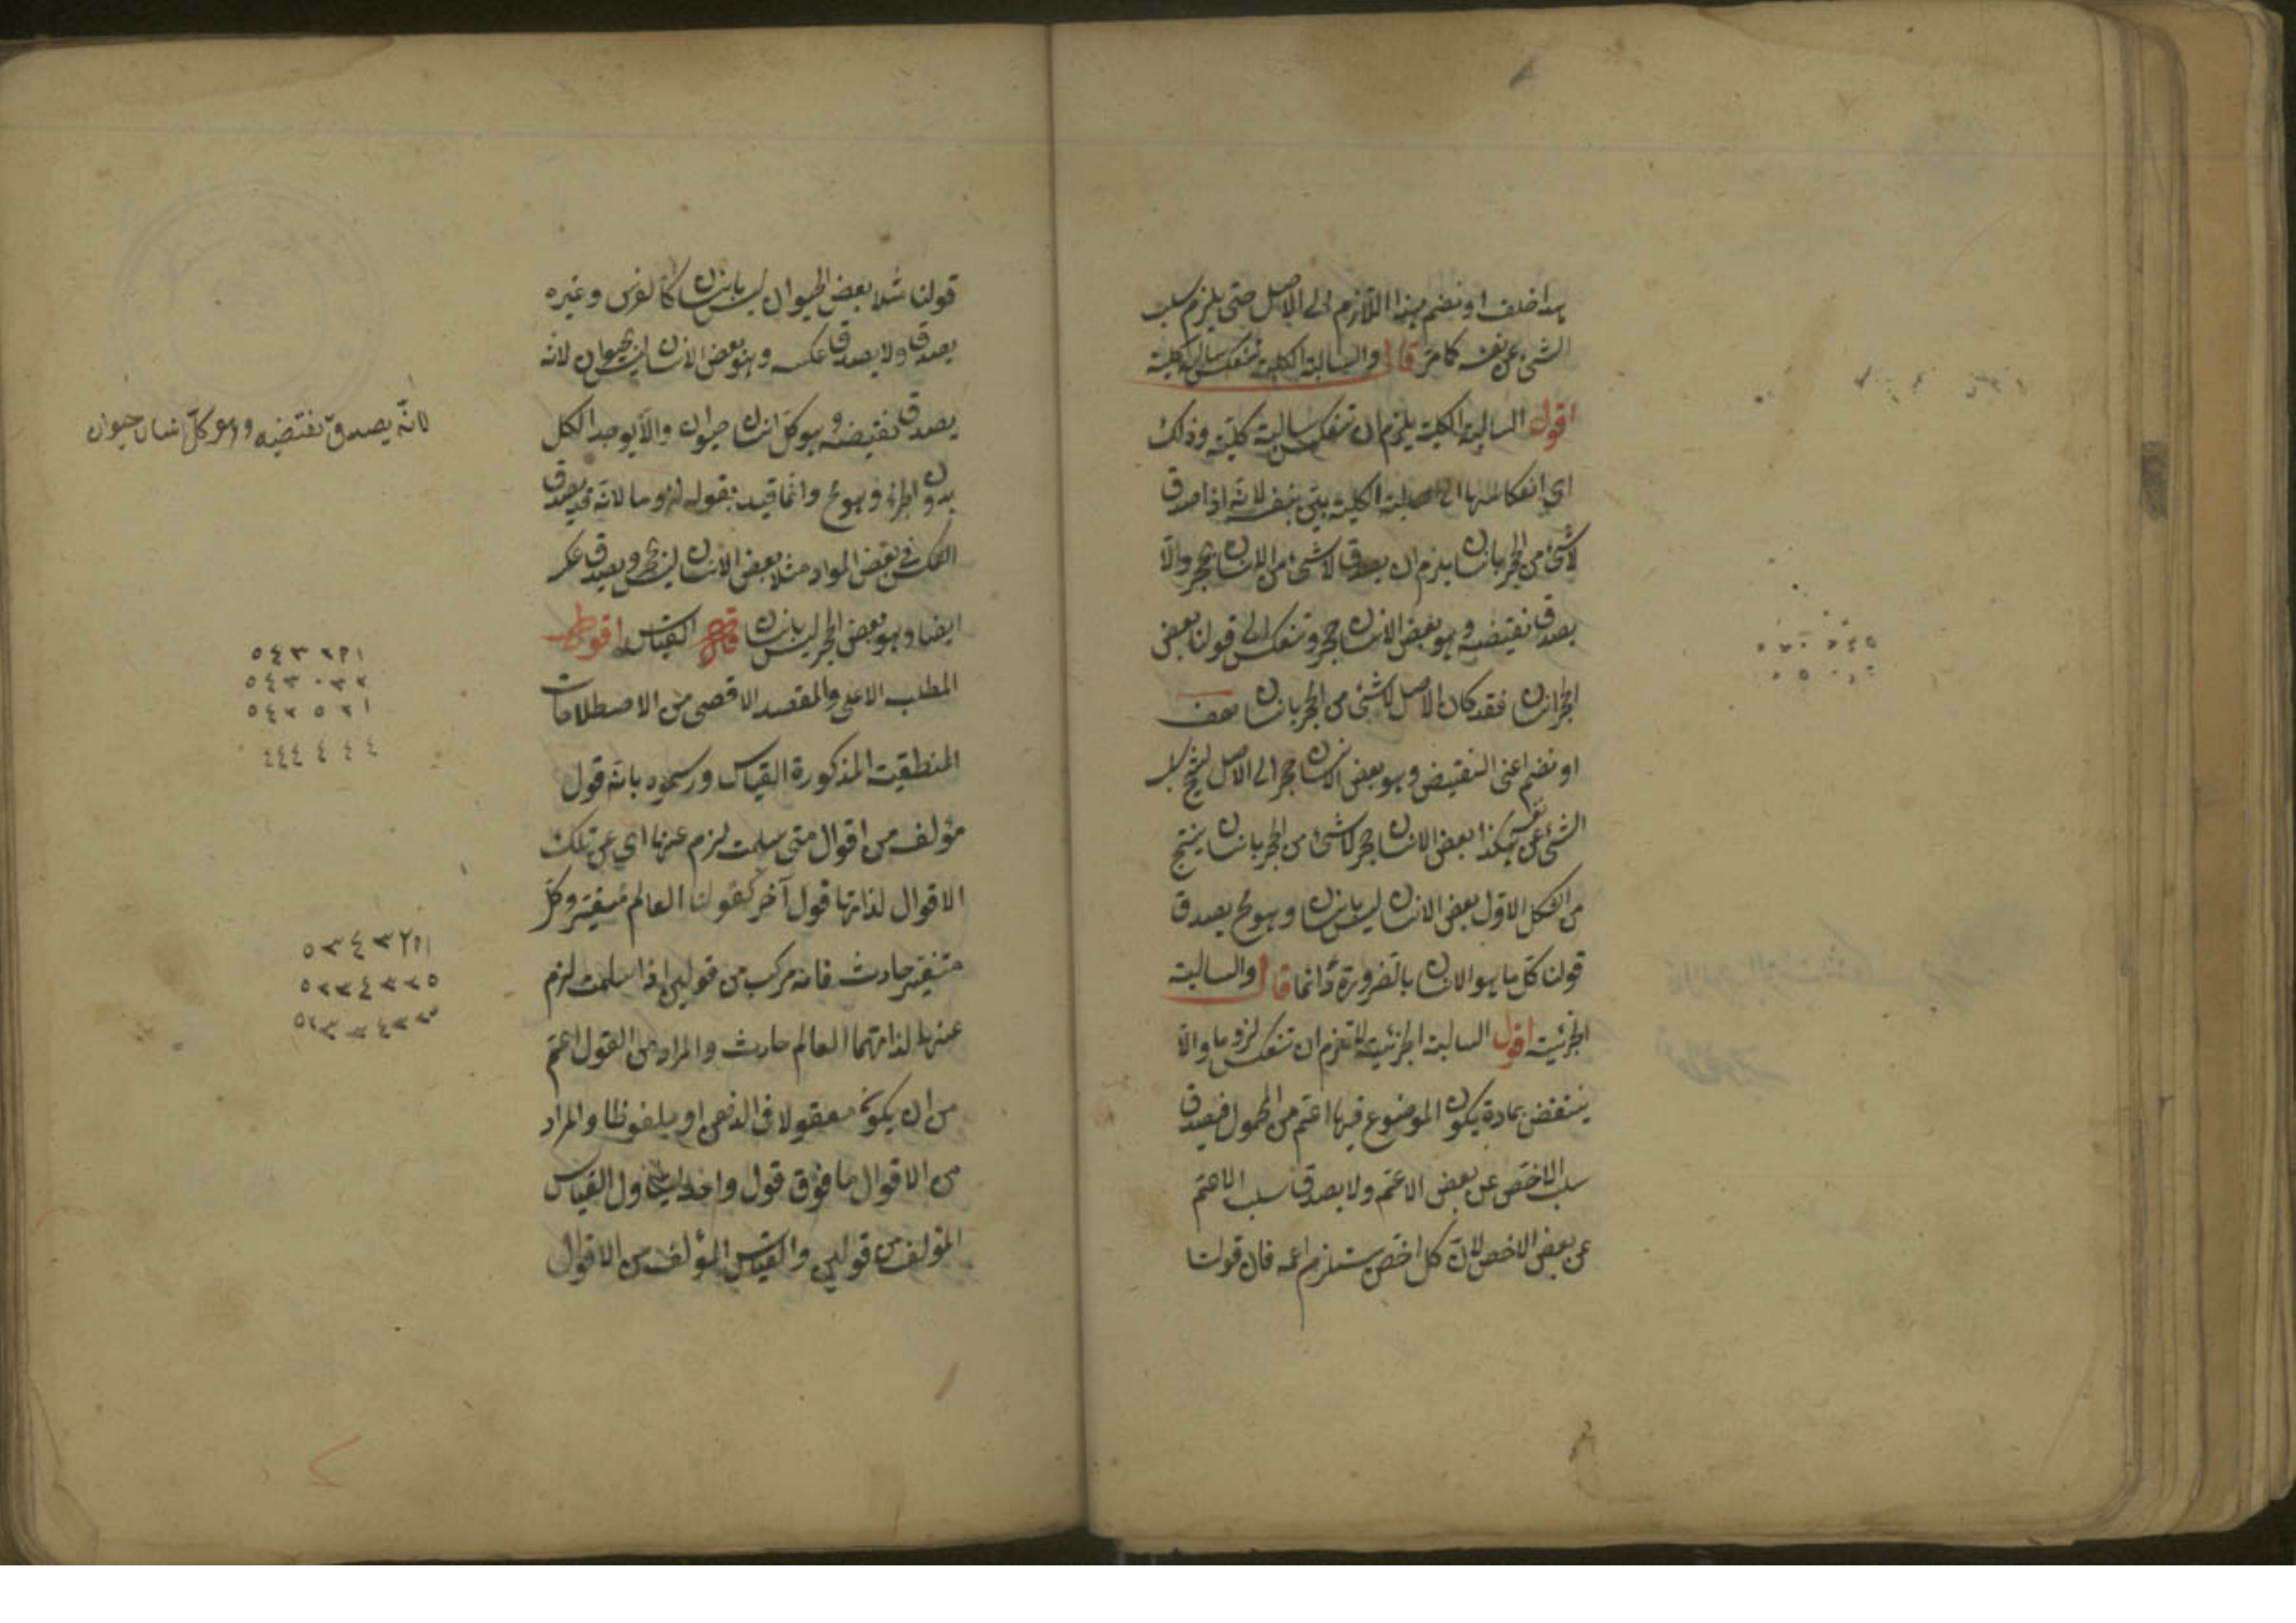 هذا خلف او نضم هذا اللازم الى الاصل حتى يلزم سلب
الشئ عن نفسه كما مر قال والسالبة الكلية تنعكس سالبة كلية
اقول السالبة الكلية يلزم ان تنعكس سالبة كلية وذلك
اي انعكاسها الى سالبة الكلية بيّن بنفسه لانه اذا صدق
لا شئ من الحجر بانسان يلزم ان يصدق لا شئ من الانسان بحجر والا
يصدق نقيضه وهو بعض الانسان حجر وتنعكس الى قولنا بعض
الحجر انسان فقد كان الاصل لا شئ من الحجر بانسان هف
او نضم اعنى النقيض وهو بعض الانسان حجر الى الاصل لينتج سلب
الشئ عن نفسه هكذا بعض الانسان حجر لا شئ من الحجر بانسان ينتج
من الشكل الاول بعض الانسان ليس بانسان وهو مح يصدق
قولنا كل ما هو الانسان بالضرورة دائما قال والسالبة
الجزئية اقول السالبة الجزئية لا تلزم ان تنعكس لزوما والا
ينتقض بمادة يكون الموضوع فيها اعم من المحمول فيصدق
سلب الاخص عن بعض الاعم ولا يصدق سلب الاعم
عن بعض الاخص لان كل اخص يستلزم اعمه فان قولنا
قولنا مثلا بعض الحيوان ليس بانسان كالفرس وغيره
يصدق ولا يصدق عكسه وهو بعض الانسان ليس بحيوان لانه
يصدق نقيضه وهو كل انسان حيوان والا يوجد الكل
بدون الجزء وهو مح وانما قيد بقوله لزوما لانه قد يصدق
العكس في بعض المواد مثلا بعض الانسان ليس بحجر ويصدق عكسه
ايضا وهو بعض الحجر ليس بانسان قال القياس اقول
المطلب الاعلى والمقصد الاقصى من الاصطلاحات
المنطقية المذكورة القياس ورسموه بانه قول
مؤلف من اقوال متى سلمت لزم عنها اي عن تلك
الاقوال لذاتها قول آخر كقولنا العالم متغير وكل
متغير حادث فانه مركب من قولين اذا سلمت لزم
عنهما لذاتهما العالم حادث والمراد من القول اعم
من ان يكون معقولا في الذهن او ملفوظا والمراد
من الاقوال ما فوق قول واحد ليتناول القياس
المؤلف من قولين والقياس المؤلف من الاقوال
لانه يصدق نقيضه وهو كل انسان حيوان